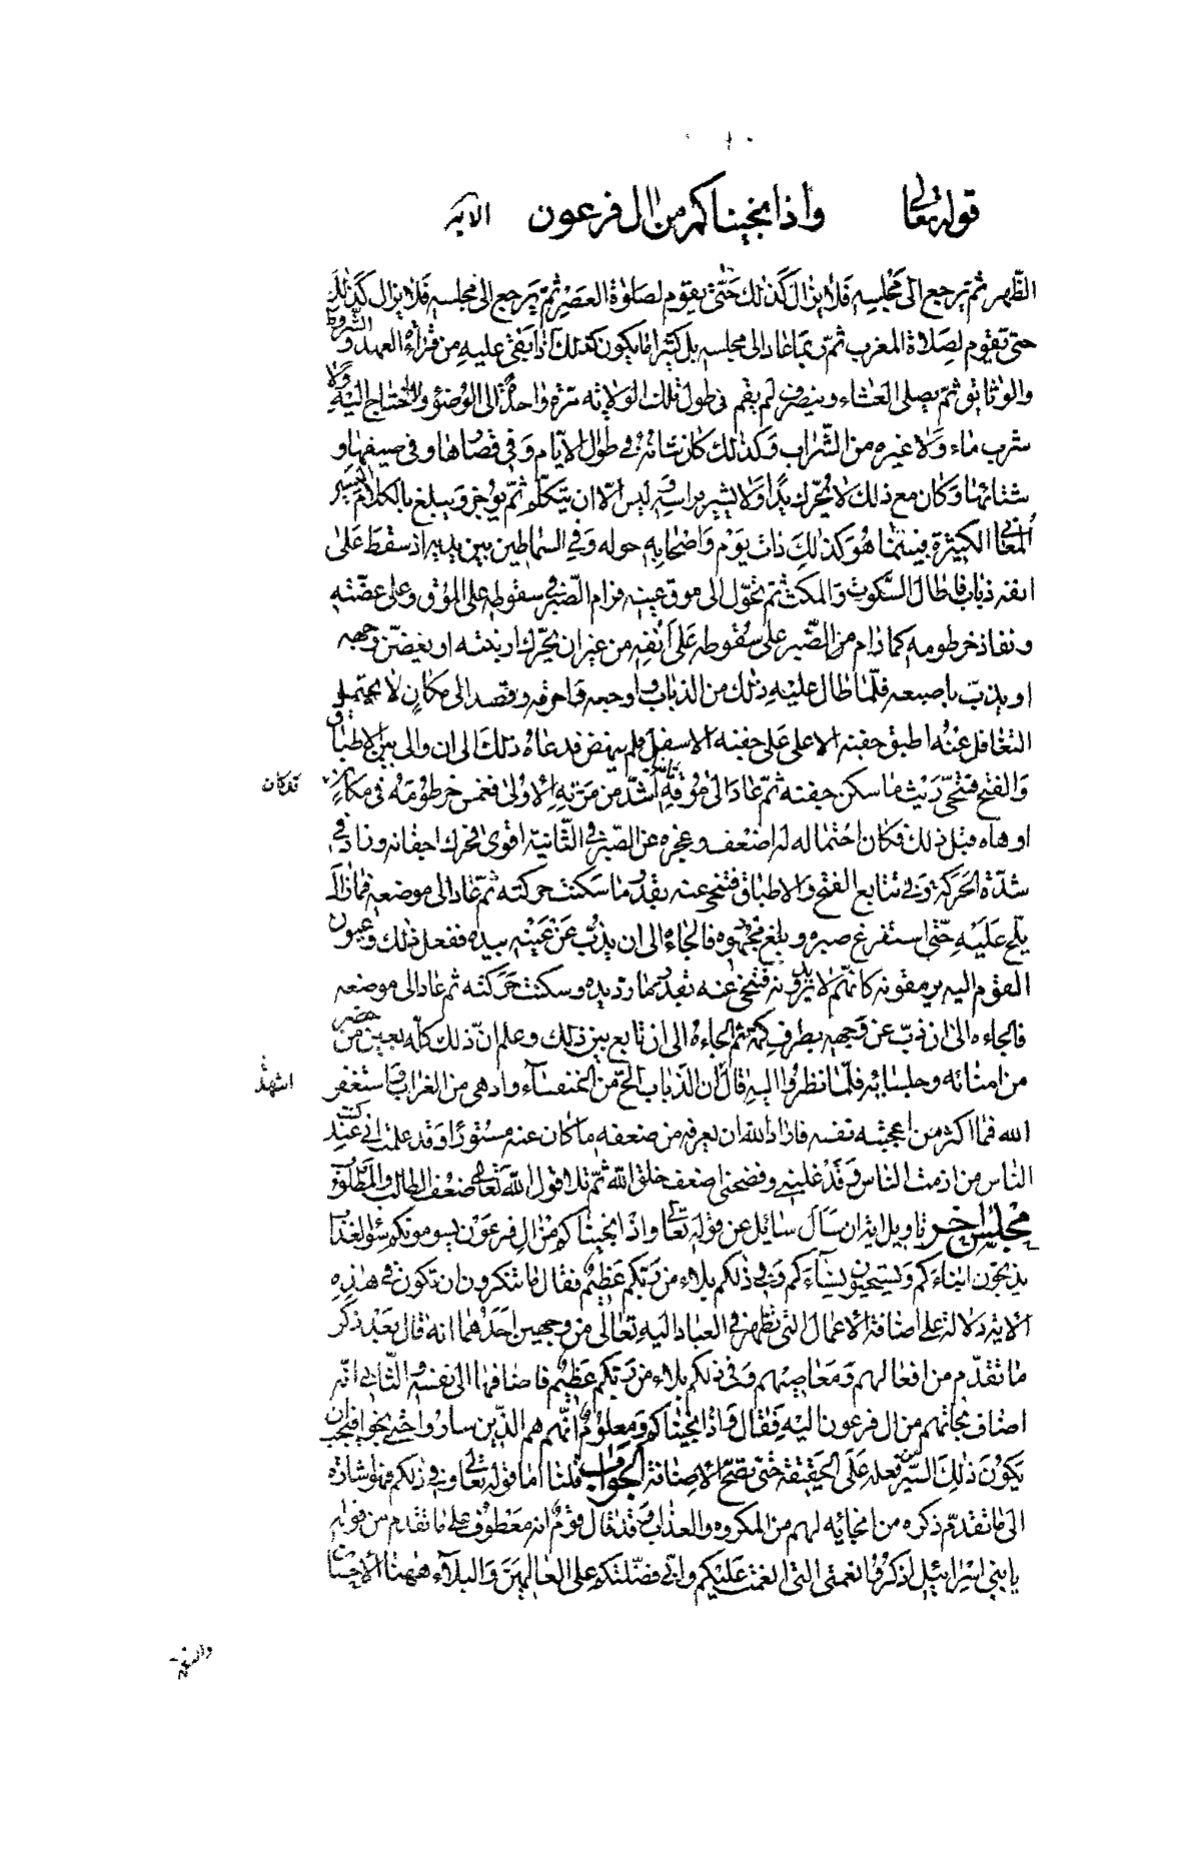 قوله تعالى واذا نجيناكم من ال فرعون الاية
الظهر ثم يرجع الى مجلسه فلا يزال كذلك حتى يقوم لصلوة العصر ثم يرجع الى مجلسه فلا يزال كذلك
حتى يقوم لصلاة المغرب ثم ربما عاد الى مجلسه بل كثيرا ما يكون كذلك اذا بقى عليه من قراءة العهد والشروط
والوثايق ثم يصلى العشاء وينصرف لم يقم في طول تلك الولاية مرة واحدة الى الوضوء ولا احتاج اليه ولا
شرب ماء ولا غيره من الشراب وكذلك كان شانه في طول الايام وفي قصارها وفي صيفها و
شتائها وكان مع ذلك لا يحرك يدا ولا يشير براسه ليس الا ان يتكلم ثم يوجز ويبلغ بالكلام اليسير
المعاني الكثيرة فبينما هو كذلك ذات يوم واصحابه حوله وفي السماطين بين يديه اذ سقط على
انفه ذباب فاطال السكوت والمكث ثم تحول الى موق عينه فرام الصبر في سقوطه على الموق وعلى عضته
ونفاذ خرطومه كما رام من الصبر على سقوطه على انفه من غير ان يحرك ارنبته او يغضن وجهه
او يذب باصبعه فلما طال عليه ذلك من الذباب واوجعه واحرقه وقصد الى مكان لا يحتمل
التغافل عنه اطبق جفنه الاعلى على جفنه الاسفل فلم ينهض فدعاه ذلك الى ان والى بين الاطباق
والفتح فتنحى ريث ما سكن جفنه ثم عاد الى موقه ثانيا اشد من مرته الاولى فغمس خرطومه في مكان
قد كان
اوهاه قبل ذلك فكان احتماله له اضعف وعجزه عن الصبر في الثانية اقوى فحرك اجفانه وزاد في
شدة الحركة وفي تتابع الفتح والاطباق فتنحى عنه بقدر ما سكنت حركته ثم عاد الى موضعه فما زال
يلح عليه حتى استفرغ صبره وبلغ مجهوده فالجاه الى ان يذب عن عينيه بيده ففعل ذلك وعيون
القوم اليه يرمقونه كانهم لا يرونه فتنحى عنه بقدر ما رد يده وسكنت حركته ثم عاد الى موضعه
فالجاه الى ان ذب عن وجهه بطرف كمه ثم الجاه الى ان تابع بين ذلك وعلم ان ذلك كله بعين من حضر
من امنائه وجلسائه فلما نظروا اليه قال ان الذباب الح من الخنفساء وازهى من الغراب واستغفر
اشهد
الله فما اكثر من اعجبته نفسه فاراد الله ان يعرفه من ضعفه ما كان عنه مستورا وقد علمت انى كنت عند
الناس من ازمت الناس وقد غلبني وفضحني اضعف خلق الله ثم تلا قول الله تعالى ضعف الطالب والمطلوب
مجلس اخر تاويل اية ان سأل سائل عن قوله تعالى واذ انجيناكم من ال فرعون يسومونكم سوء العذاب
يذبحون ابناءكم ويستحيون نساءكم وفي ذلكم بلاء من ربكم عظيم فقال ما تنكرون ان تكون في هذه
الاية دلالة على اضافة الاعمال التى تظهر في العباد اليه تعالى من وجهين احدهما انه قال بعد ذكر
ما تقدم من افعالهم ومعاصيهم وفي ذلكم بلاء من ربكم عظيم فاضافها الى نفسه والثاني انه
اضاف نجاتهم من ال فرعون اليه فقال واذ انجيناكم ومعلوم انهم هم الذين ساروا حتى نجوا فيجب ان
يكون ذلك السير من فعله على الحقيقة حتى تصح الاضافة الجواب قلنا اما قوله تعالى وفي ذلكم فهو اشارة
الى ما تقدم ذكره من انجائه لهم من المكروه والعذاب وقد قال قوم انه معطوف على ما تقدم من قوله
يا بني اسرائيل اذكروا نعمتى التى انعمت عليكم واني فضلتكم على العالمين والبلاء ههنا الاحسان
والنعمة